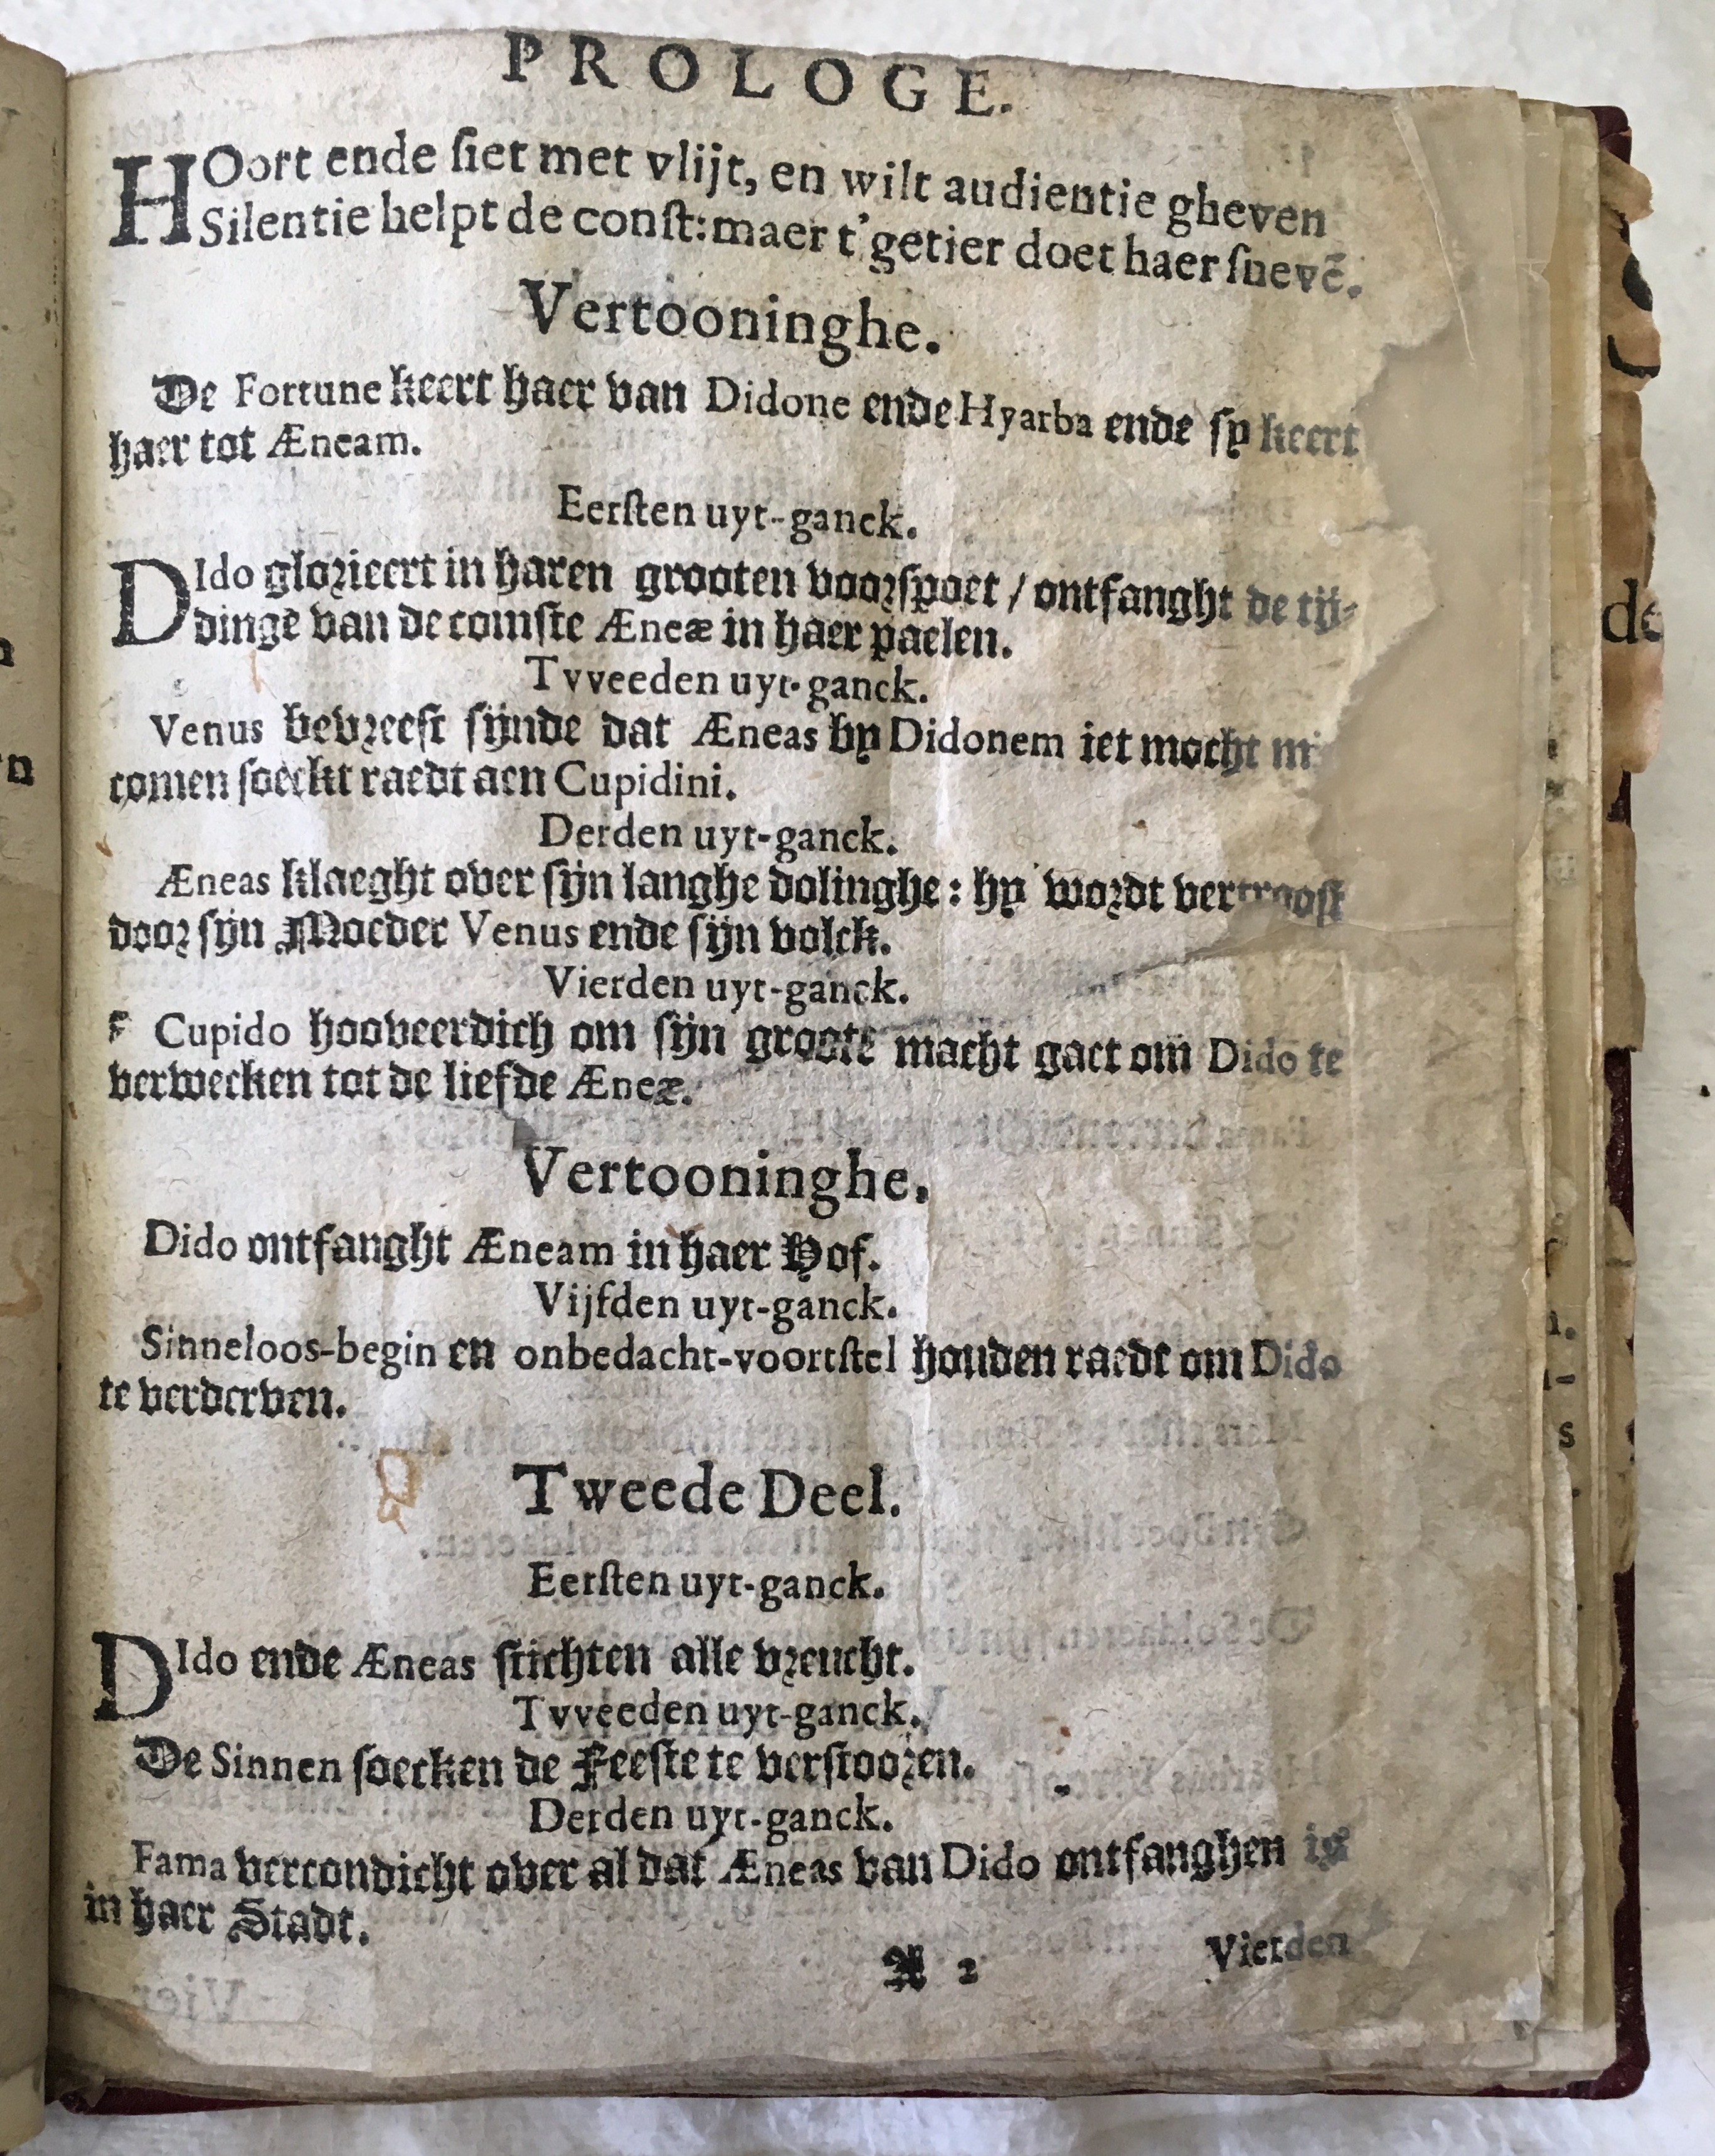 PROLOGE.
HOort ende siet met vlijt, en wilt audientie gheven
Silentie helpt de const: maer t'getier doet haer snevē.
Vertooninghe.
De Fortune keert haer van Didone ende Hyarba ende sy keert
haer tot Æneam.
Eersten uyt-ganck.
DIdo glorieert in haren grooten voorspoet / ontfanght de tij-
dinge van de comste Æneæ in haer paelen.
Tvveeden uyt-ganck.
Venus bevreest sijnde dat Æneas by Didonem iet mocht
comen soeckt raedt aen Cupidini.
Derden uyt-ganck.
Æneas klaeght over sijn langhe dolinghe: hy wordt vertroost
door sijn Moeder Venus ende sijn volck.
Vierden uyt-ganck.
Cupido hooveerdich om sijn groote macht gaet om Dido te
verwecken tot de liefde Æneæ.
Vertooninghe.
Dido ontfanght Æneam in haer Hof.
Vijfden uyt-ganck.
Sinneloos-begin en onbedacht-voortstel houden raedt om Dido
te verderven.
Tweede Deel.
Eersten uyt-ganck.
DIdo ende Æneas stichten alle vreucht.
Tvveeden uyt-ganck.
De Sinnen soecken de Feeste te verstooren.
Derden uyt-ganck.
Fama vercondicht over al dat Æneas van Dido ontfanghen is
in haer Stadt.
A 2 Vierden